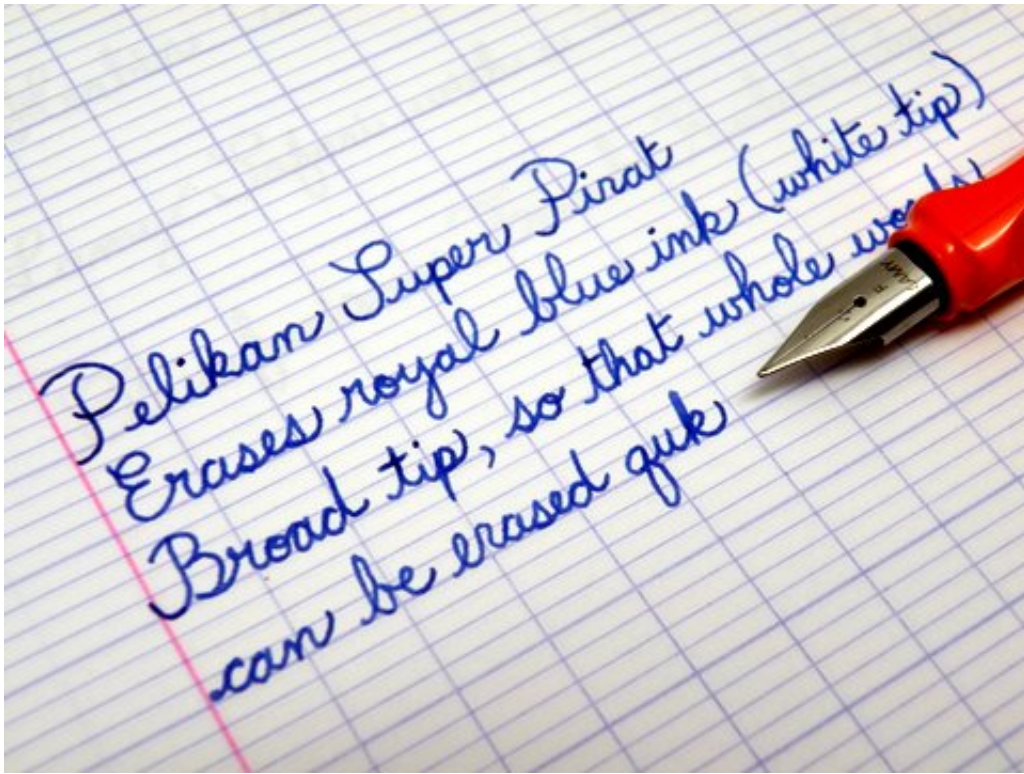 Pelikan Super Pirat
Erases royal blue ink (white tip)
Broad tip, so that whole words
can be erased quk
LAMY